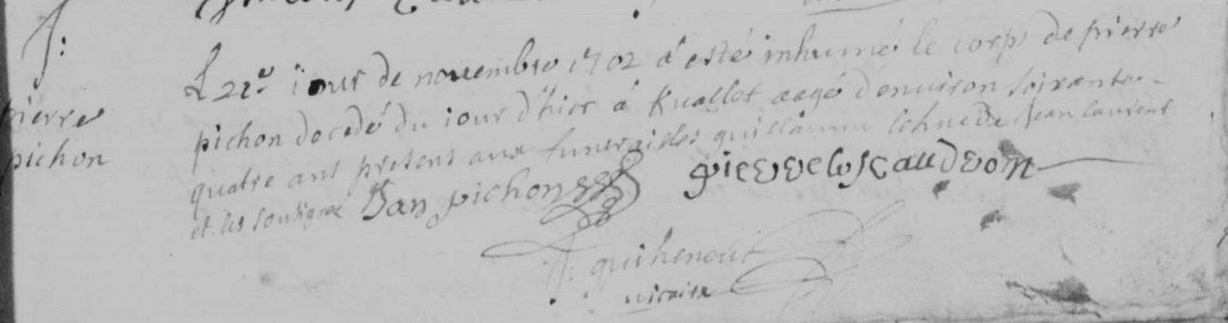 f:
pierre
pichon
L 22e iour de novembre 1702 a esté inhumé le corps de pierre
pichon decedé du iour d'hier a Kuallot aagé d'enuiron soixante
quatre ans presens aux funerailles guillaume jean laurent
et les soubsignes Jan pichon
vicaire